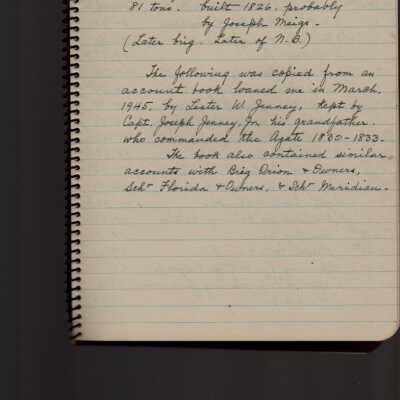 81 tons. built 1826. probably
by Joseph Meigs.
(Later brig. Later of N.B.)
The following was copied from an
account book loaned me in March,
1945, by Lester W. Jenney, kept by
Capt. Joseph Jenney, Jr. his grandfather.
who commanded the Agate 1830-1833.
The book also contained similar
accounts with Brig Orion & Owners,
Schr Florida & Owners, & Schr Meridian.